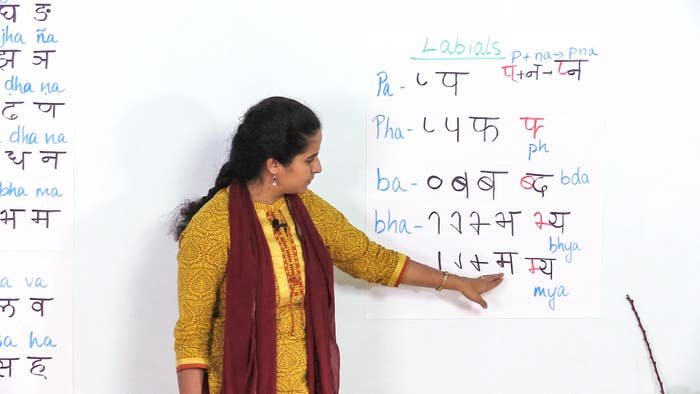 घ ङ
jha ña
झ ञ
ḍha ṇa
ढ ण
dha na
ध न
bha ma
भ म
a va
ल व
sa ha
स ह
Labials
p + na → pna
Pa - प प्+न→प्न
Pha - प फ फ्
ph
ba - ० ब ब्द bda
bha - भ भ्य
bhya
म म्य
mya